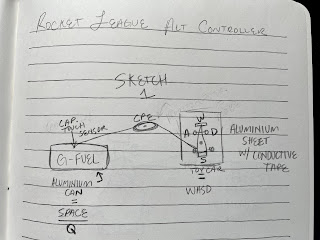 ROCKET LEAGUE ALT CONTROLLER
SKETCH
1
CAP.
TOUCH
SENSOR
CPE
W
A
D
S
G-FUEL
TOY CAR
ALUMINIUM
SHEET
W/ CONDUCTIVE
TAPE
ALUMINIUM
CAN
=
SPACE
Q
=
WASD